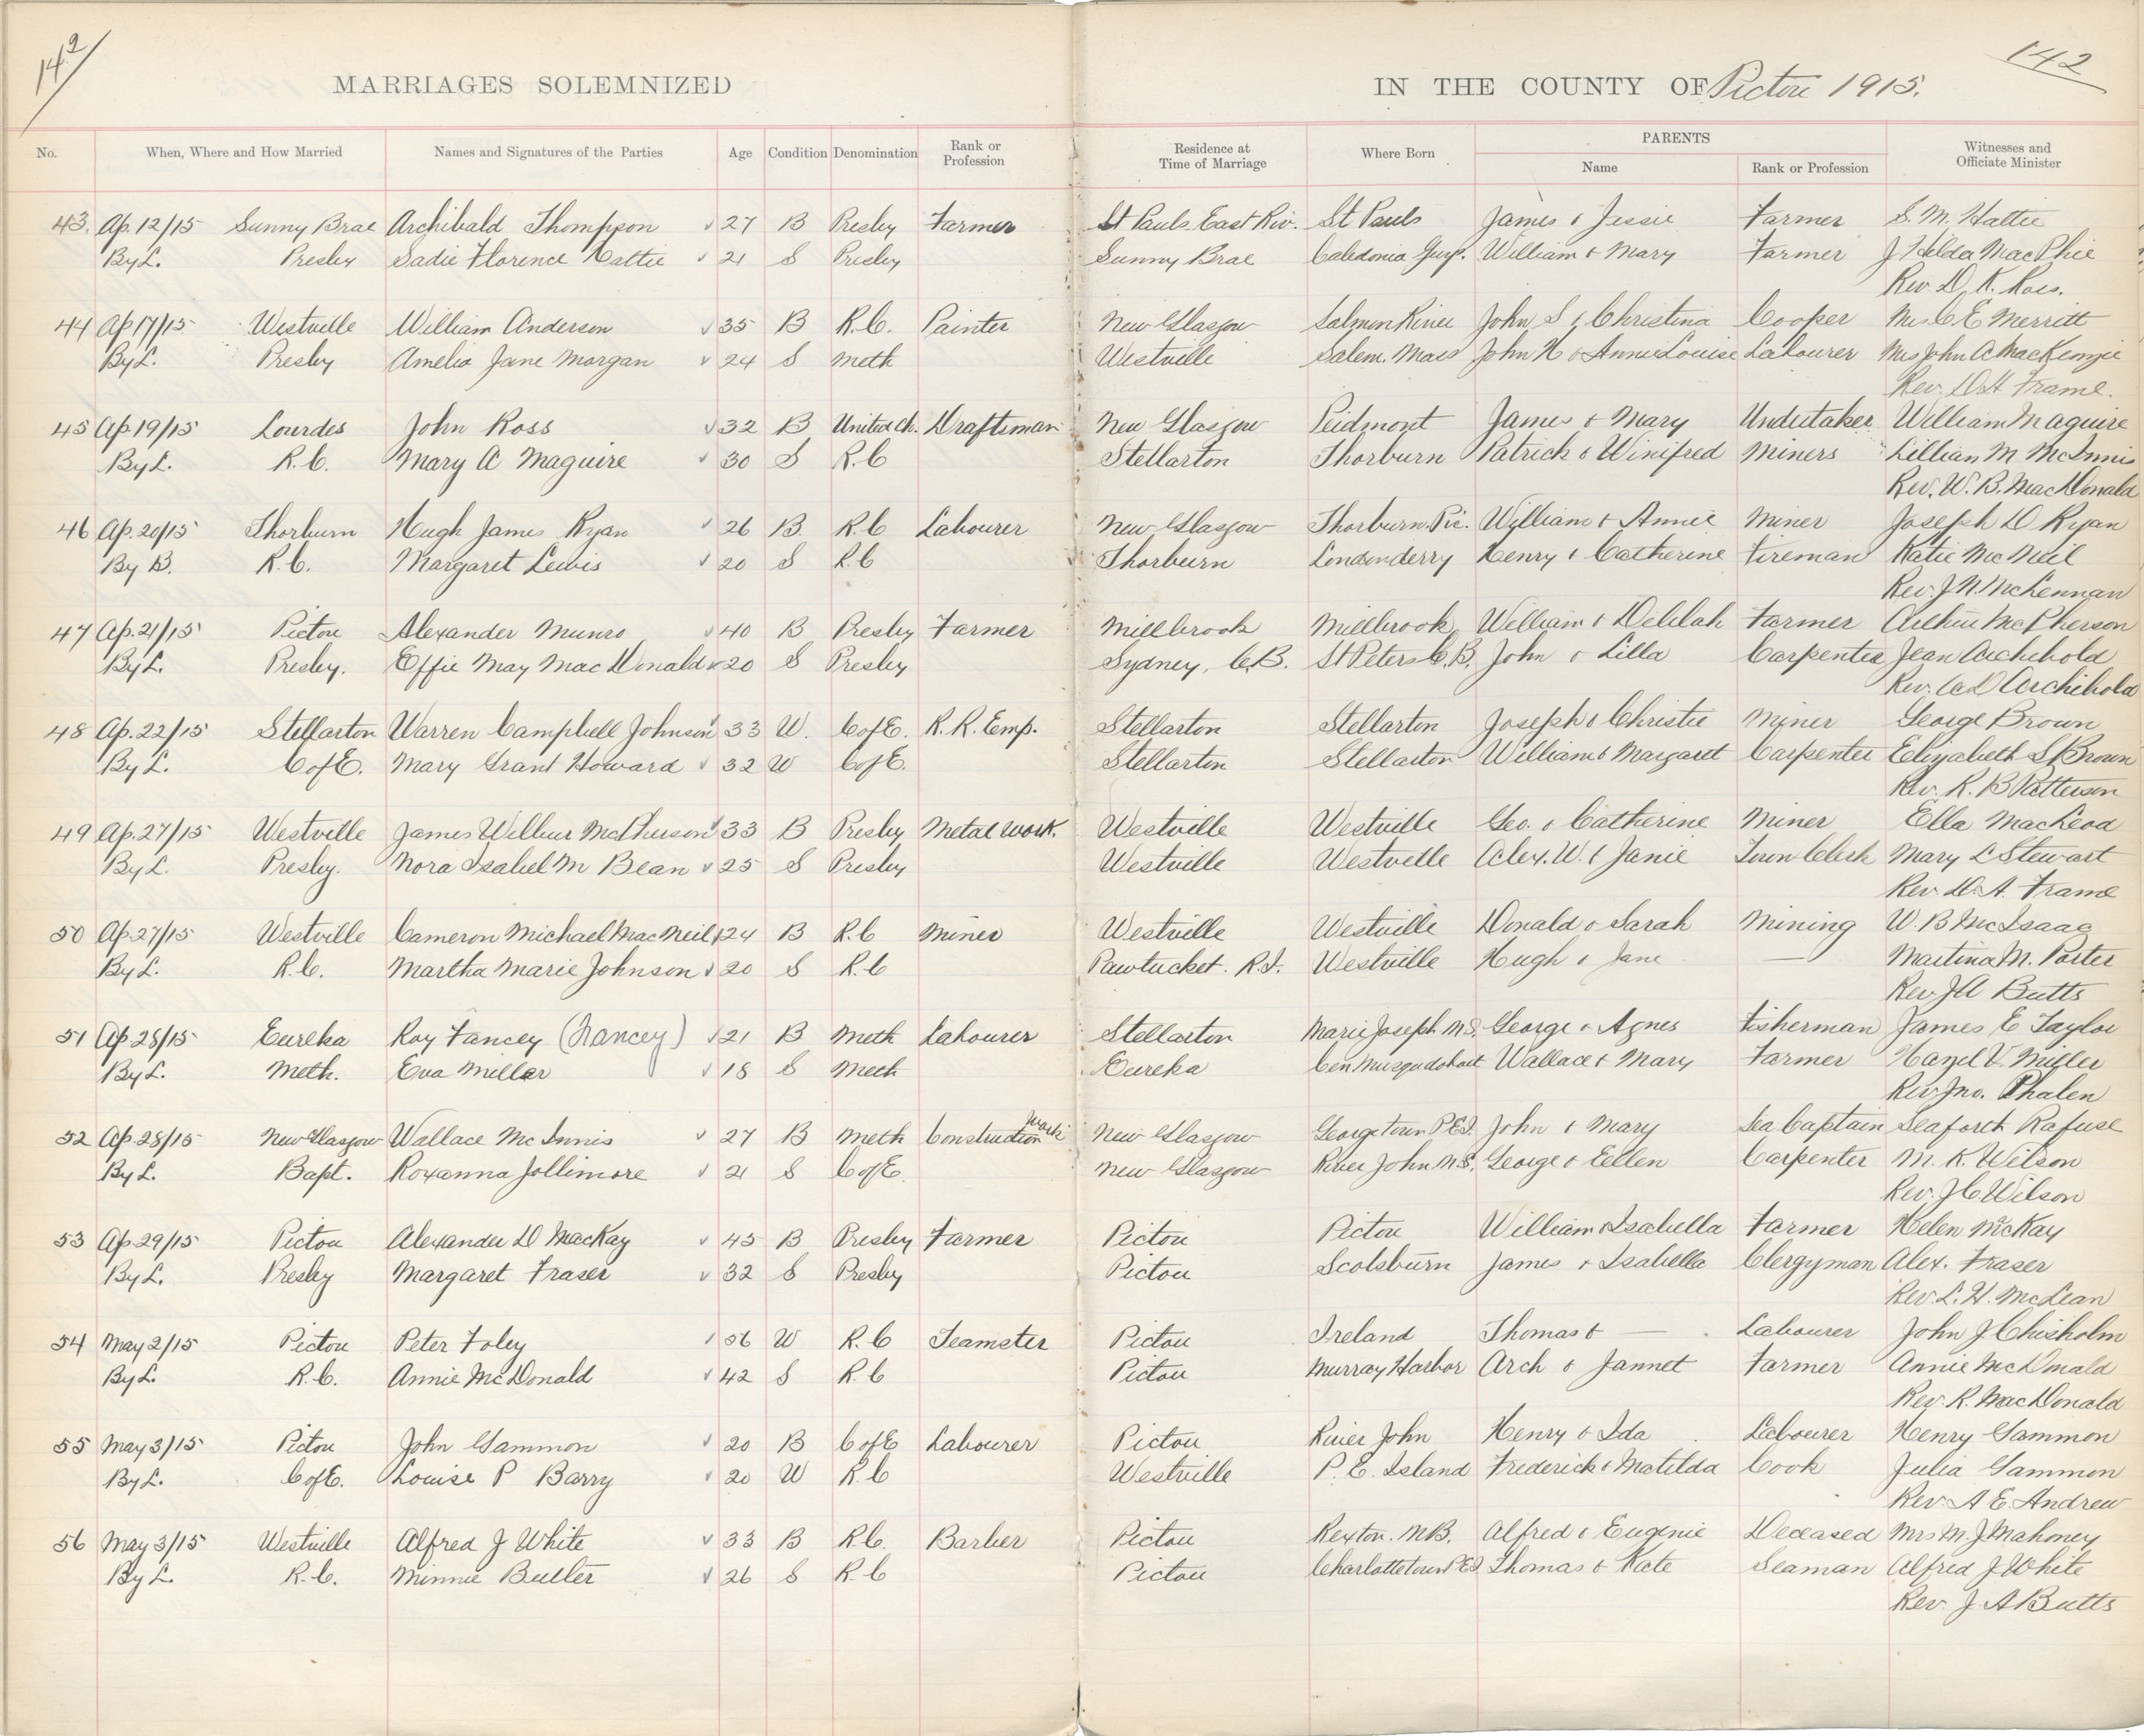 142
142
MARRIAGES SOLEMNIZED IN THE COUNTY OF Pictou 1915.
No. When, Where and How Married Names and Signatures of the Parties Age Condition Denomination Rank or Profession Residence at Time of Marriage Where Born PARENTS Name Rank or Profession Witnesses and Officiate Minister
43. Ap. 12/15 Sunny Brae Archibald Thompson 27 B Presby Farmer St Pauls East Riv. St Pauls James & Jessie Farmer S. M. Hattie
By L. Presby Sadie Florence Hattie 21 S Presby Sunny Brae Caledonia Guy. William & Mary Farmer J Hilda MacPhie
Rev. D. K. Ross.
44 Ap 17/15 Westville William Anderson 35 B R.C. Painter New Glasgow Salmon River John S & Christina Cooper Mrs C E Merritt
By L. Presby Amelia Jane Morgan 24 S Meth Westville Salem. Mass John H & Annie Louise Labourer Mrs John A MacKenzie
Rev. D A Frame.
45 Ap 19/15 Lourdes John Ross 32 B United Ch. Draftsman New Glasgow Peidmont James & Mary Undertaker William Maguire
By L. R.C. Mary A Maguire 30 S R.C Stellarton Thorburn Patrick & Winifred Miners Lillian M McInnis
Rev. W. B. MacDonald
46 Ap. 20/15 Thorburn Hugh James Ryan 26 B. R.C Labourer New Glasgow Thorburn. Pic. William & Annie Miner Joseph D Ryan
By B. R.C. Margaret Lewis 20 S R.C Thorburn Londonderry Henry & Catherine Fireman Katie McNeil
Rev. J. N. McLennan
47 Ap. 21/15 Pictou Alexander Munro 40 B Presby Farmer Millbrook Millbrook William & Delilah Farmer Arthur McPherson
By L. Presby. Effie May MacDonald 20 S Presby Sydney, C.B. St Peters C.B. John & Lilla Carpenter Jean Archibold
Rev. A D Archibold
48 Ap. 22/15 Stellarton Warren Campbell Johnson 33 W. C of E. R. R. Emp. Stellarton Stellarton Joseph & Christie Miner George Brown
By L. C of E. Mary Grant Howard 32 W C of E. Stellarton Stellarton William & Margaret Carpenter Elizabeth S Brown
Rev. R. B Patterson
49 Ap. 27/15 Westville James Wilbur McPherson 33 B Presby Metal Work. Westville Westville Geo. & Catherine Miner Ella MacLeod
By L. Presby. Nora Isabel M Bean 25 S Presby Westville Westville Alex. W. & Janie Town Clerk Mary L Stewart
Rev. D. A. Frame
50 Ap. 27/15 Westville Cameron Michael MacNeil 24 B R.C Miner Westville Westville Donald & Sarah Mining W. B McIsaac
By L. R.C. Martha Marie Johnson 20 S R.C Pawtucket. R.I. Westville Hugh & Jane — Martina M. Porter
Rev. J A Butts
51 Ap 28/15 Eureka Roy Fancey (Nancey) 21 B Meth Labourer Stellarton Marie Joseph N.S. George & Agnes Fisherman James E Taylor
By L. Meth. Eva Miller 18 S Meth Eureka Cen Musquodoboit Wallace & Mary Farmer Hazel V. Miller
Rev. Jno. Phalen
52 Ap. 28/15 New Glasgow Wallace McInnis 27 B Meth Construction Work New Glasgow Georgetown P.E.I. John & Mary Sea Captain Seaforth Rafuse
By L. Bapt. Roxanna Jollimore 21 S C of E. New Glasgow River John N.S. George & Eellen Carpenter M. K. Wilson
Rev. J C Wilson
53 Ap 29/15 Pictou Alexander D MacKay 45 B Presby Farmer Pictou Pictou William & Isabella Farmer Helen McKay
By L. Presby Margaret Fraser 32 S Presby Pictou Scotsburn James & Isabella Clergyman Alex. Fraser
Rev. L. H. McLean
54 May 2/15 Pictou Peter Foley 56 W R.C Teamster Pictou Ireland Thomas & — Labourer John J Chisholm
By L. R.C. Annie McDonald 42 S R.C Pictou Murray Harbor Arch & Jannet Farmer Annie McDonald
Rev. R. MacDonald
55 May 3/15 Pictou John Gammon 20 B C of E Labourer Pictou River John Henry & Ida Labourer Henry Gammon
By L. C of E. Louise P Barry 20 W R.C Westville P. E. Island Frederick & Matilda Cook Julia Gammon
Rev. A E. Andrew
56 May 3/15 Westville Alfred J White 33 B R.C. Barber Pictou Rexton. N.B. Alfred & Eugenie Deceased Mrs M. J Mahoney
By L. R.C. Minnie Butler 26 S R.C Pictou Charlottetown P.E.I Thomas & Kate Seaman Alfred J White
Rev. J. A Butts